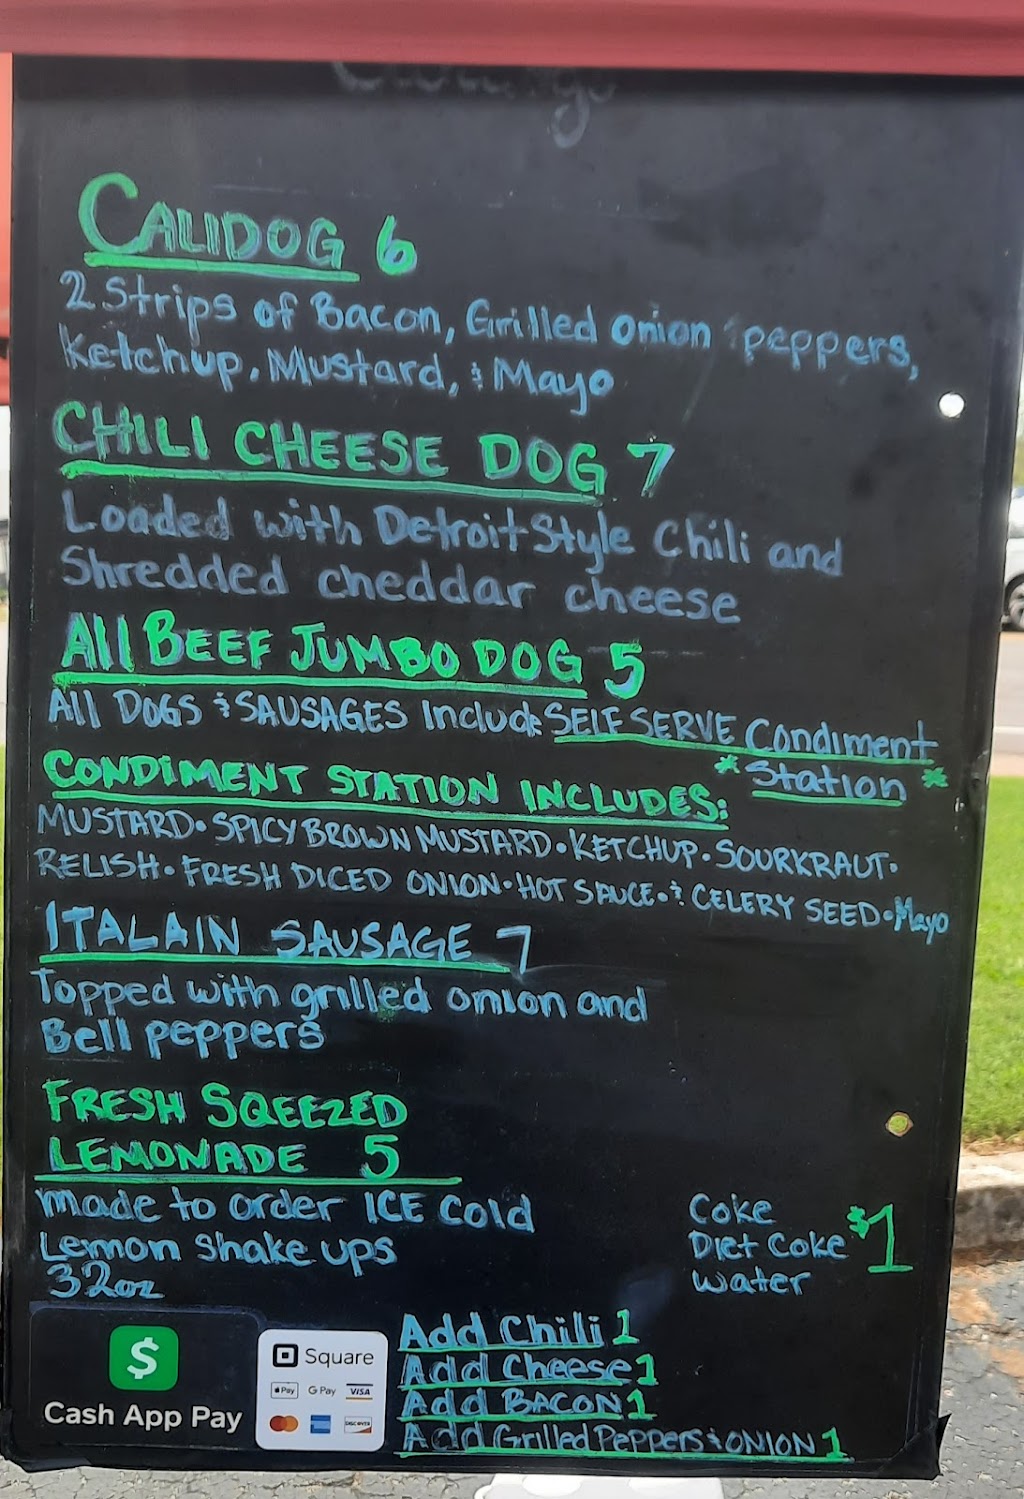 CALIDOG 6
2 Strips of Bacon, Grilled Onion & peppers,
Ketchup, Mustard, & Mayo
CHILI CHEESE DOG 7
Loaded with Detroit Style Chili and
Shredded cheddar cheese
All BEEF JUMBO DOG 5
All DOGS & SAUSAGES Include SELF SERVE Condiment
* Station *
CONDIMENT STATION INCLUDES:
MUSTARD • SPICY BROWN MUSTARD • KETCHUP • SOURKRAUT •
RELISH • FRESH DICED ONION • HOT SAUCE • & CELERY SEED • Mayo
ITALAIN SAUSAGE 7
Topped with grilled onion and
Bell peppers
FRESH SQEEZED
LEMONADE 5
made to order ICE Cold
Lemon Shake ups
32oz
Coke
Diet Coke $1
Water
Add Chili 1
Add Cheese 1
Add BACON 1
Add Grilled Peppers & ONION 1
$
Cash App Pay
Square
Pay G Pay VISA
DISCOVER